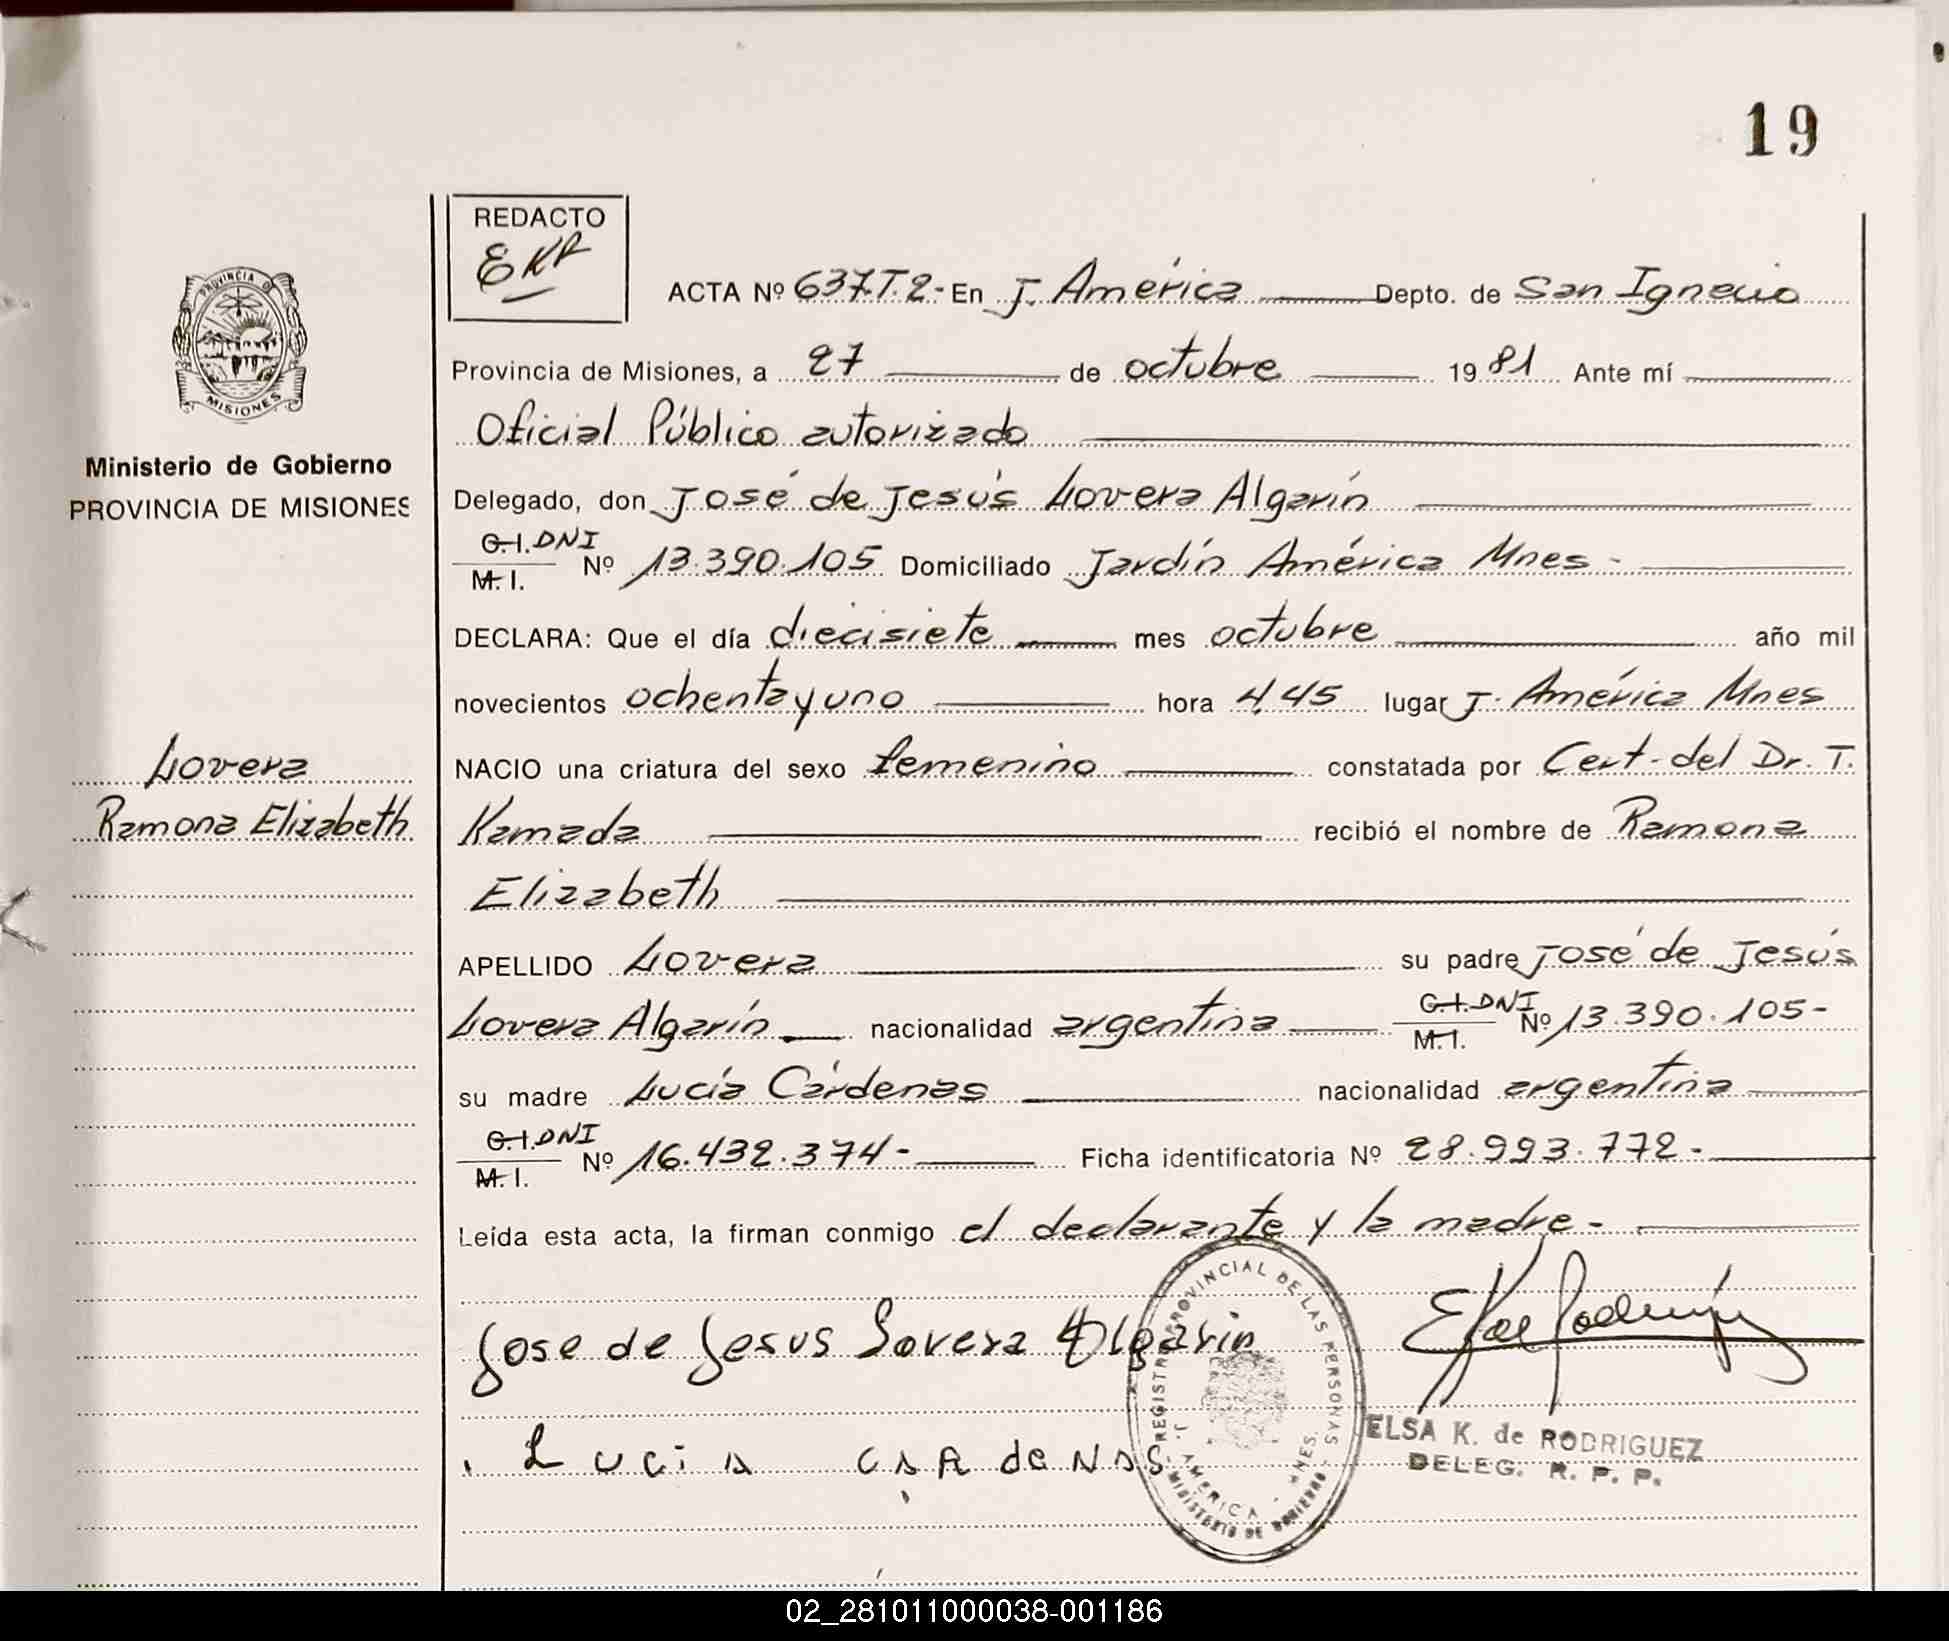 19
REDACTO
EKR
ACTA Nº 637.T.2.- En J. América Depto. de San Ignacio
Provincia de Misiones, a 27 de octubre 1981 Ante mí
Oficial Público autorizado
Delegado, don José de Jesús Lovera Algarín
C.I. DNI
M.I. Nº 13.390.105 Domiciliado Jardín América Mnes -
DECLARA: Que el día diecisiete mes octubre año mil
novecientos ochenta y uno hora 4,45 lugar J. América Mnes
NACIO una criatura del sexo femenino constatada por Cert. del Dr. T.
Kamada recibió el nombre de Ramona
Elizabeth
APELLIDO Lovera su padre José de Jesús
Lovera Algarín nacionalidad argentina C.I. DNI M.I. Nº 13.390.105-
su madre Lucía Cárdenas nacionalidad argentina
C.I. DNI
M.I. Nº 16.432.374- Ficha identificatoria Nº 28.993.772-
Leída esta acta, la firman conmigo el declarante y la madre-
Jose de Jesus Lovera Algarin
Lucia CARdeNAS
ELSA K. de RODRIGUEZ
DELEG. R. P. P.
REGISTRO PROVINCIAL DE LAS PERSONAS
J. AMERICA - MNES.
MINISTERIO DE GOBIERNO
PROVINCIA DE
MISIONES
Ministerio de Gobierno
PROVINCIA DE MISIONES
Lovera
Ramona Elizabeth
02_281011000038-001186